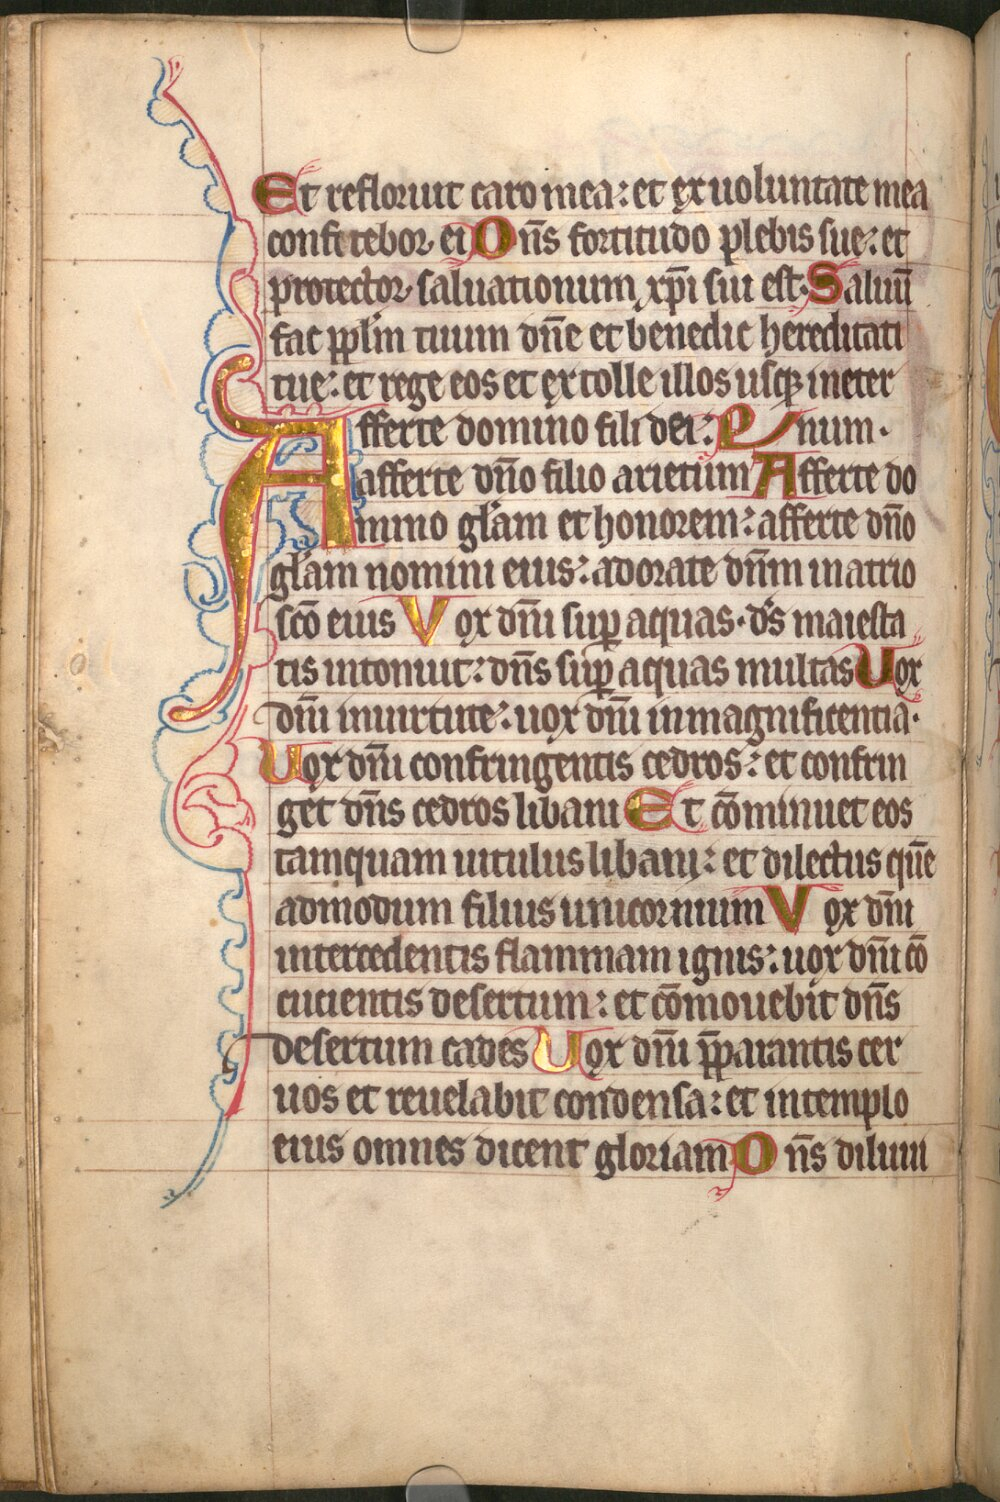 Et refloruit caro mea: et ex uoluntate mea
confitebor ei Dn̄s fortitudo plebis sue: et
protector saluationum xp̄i sui est. Saluū
fac ppl̄m tuum dn̄e et benedic hereditati
tue: et rege eos et extolle illos usq; in eter
Afferte domino fili dei: num.
afferte dn̄o filio arietum Afferte do
mino gl̄am et honorem: afferte dn̄o
gl̄am nomini eius: adorate dn̄m in atrio
sc̄o eius Vox dn̄i sup̄ aquas. ds̄ maiesta
tis intonuit: dn̄s sup̄ aquas multas Uox
dn̄i in uirtute: uox dn̄i in magnificentia.
Uox dn̄i confringentis cedros: et confrin
get dn̄s cedros libani Et cōminuet eos
tamquam uitulus libani: et dilectus quē
admodum filius unicornium Vox dn̄i
intercedentis flammam ignis: uox dn̄i cō
cucientis desertum: et cōmouebit dn̄s
desertum cades Uox dn̄i p̄parantis cer
uos et reuelabit condensa: et in templo
eius omnes dicent gloriam Dn̄s diluui